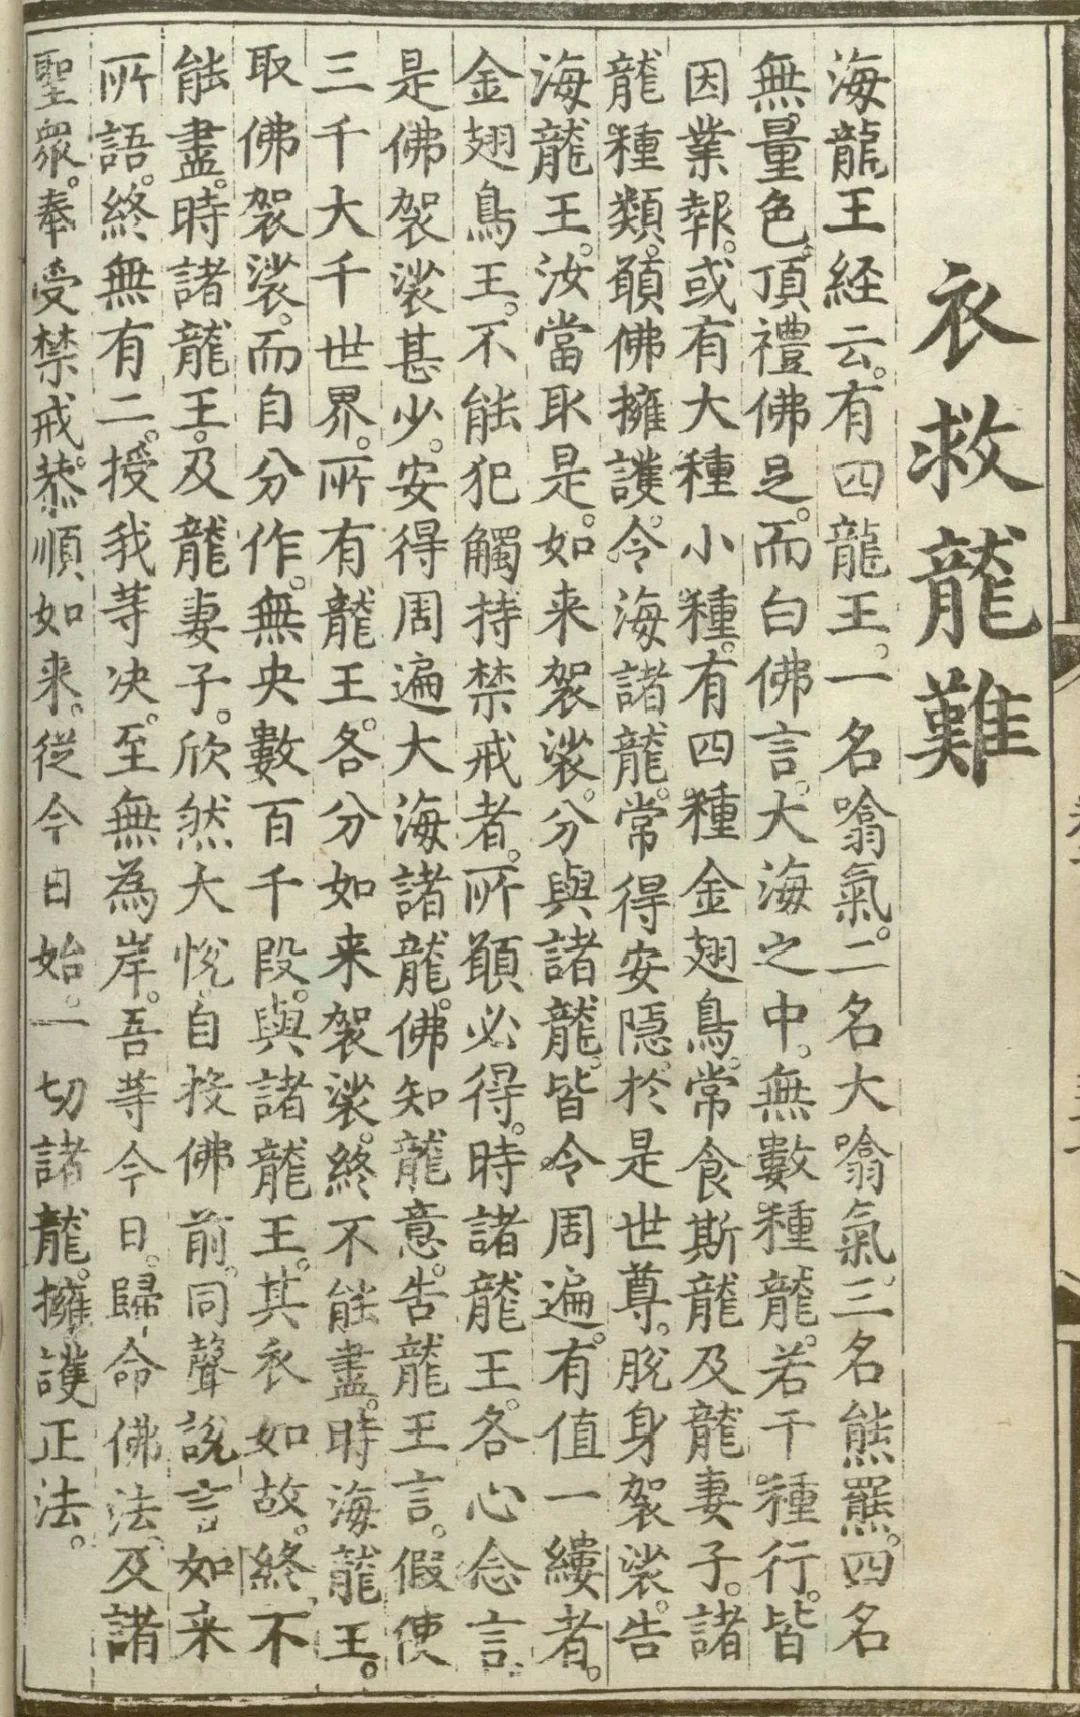 衣救龍難
海龍王経云。有四龍王。一名噏氣。二名大噏氣。三名熊羆。四名
無量色。頂禮佛足。而白佛言。大海之中。無數種龍。若干種行。皆
因業報。或有大種小種。有四種金翅鳥。常食斯龍及龍妻子。諸
龍種類。願佛擁護。令海諸龍。常得安隱。於是世尊。脫身袈裟。告
海龍王。汝當取是。如来袈裟。分與諸龍。皆令周遍。有值一縷者。
金翅鳥王。不能犯觸持禁戒者。所願必得。時諸龍王。各心念言。
是佛袈裟甚少。安得周遍大海諸龍。佛知龍意。告龍王言。假使
三千大千世界。所有龍王。各分如来袈裟。終不能盡。時海龍王。
取佛袈裟。而自分作。無央數百千段。與諸龍王。其衣如故。終不
能盡。時諸龍王。及龍妻子。欣然大悅。自投佛前。同聲說言。如来
所語。終無有二。授我等决。至無為岸。吾等今日。歸命佛法。及諸
聖衆。奉受禁戒。恭順如来。從今日始。一切諸龍。擁護正法。